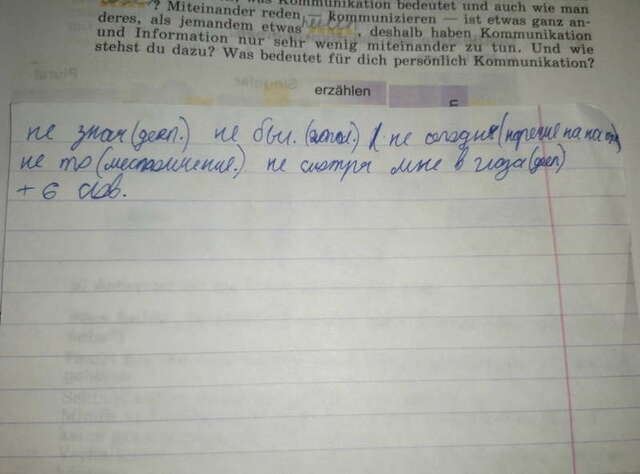 was Kommunikation bedeutet und auch wie man
? Miteinander reden — kommunizieren — ist etwas ganz an-
deres, als jemandem etwas , deshalb haben Kommunikation
und Information nur sehr wenig miteinander zu tun. Und wie
stehst du dazu? Was bedeutet für dich persönlich Kommunikation?
erzählen
не зная (дееп.) не был. (глагол.) не сегодня (наречие на
не то (местоимение.) не смотря мне в глаза (дееп)
+ 6 слов.